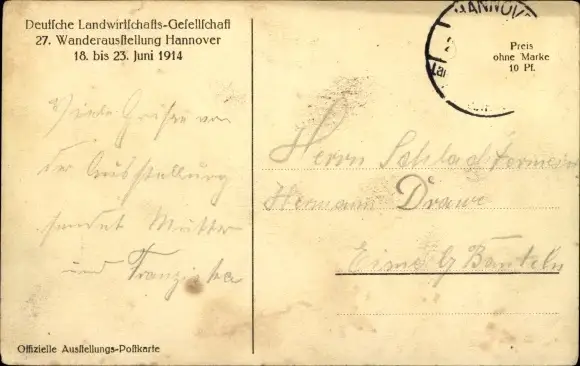 Deutsche Landwirtschafts-Gesellschaft
27. Wanderausstellung Hannover
18. bis 23. Juni 1914
HANNOV
Preis
ohne Marke
10 Pf.
Viele Grüße von
der Ausstellung
sendet Mutter
und Franziska
Herrn Schlachtermeis
Hermann Drawe
Eime b/ Banteln
Offizielle Ausstellungs-Postkarte